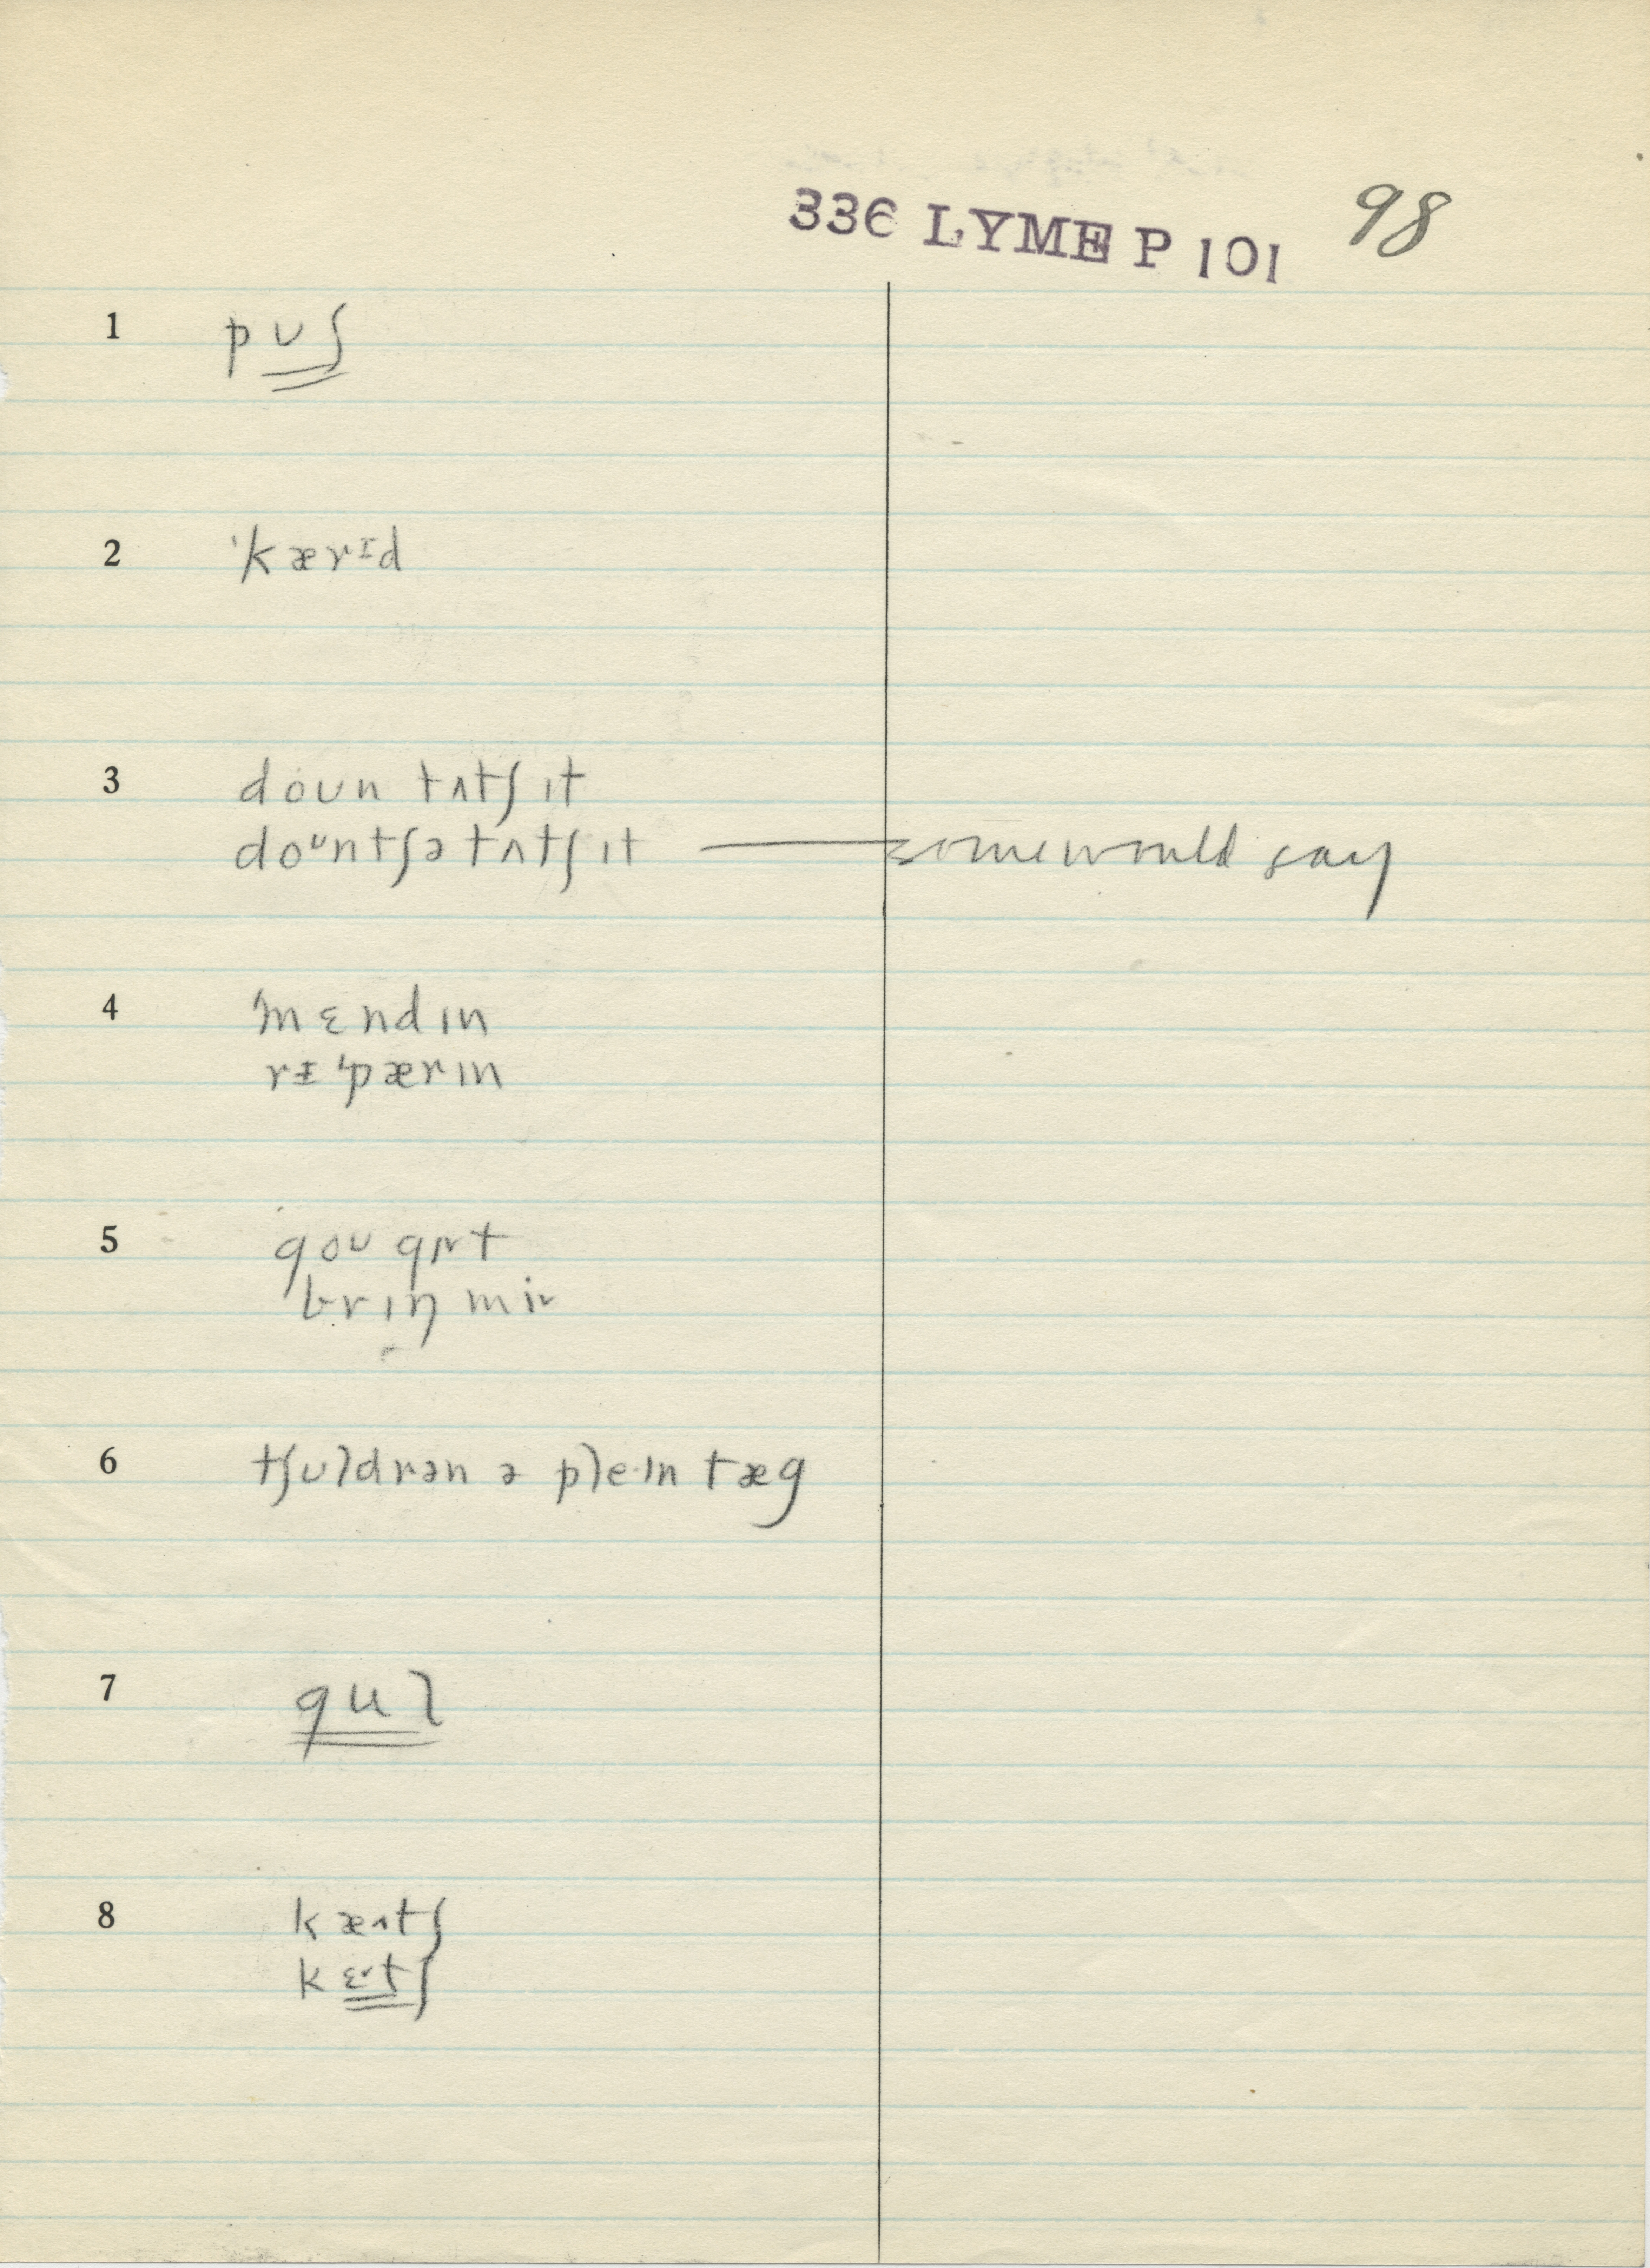 336 LYME P 101 98
1 pʊʃ
2 ˈkærɪd
3 doʊn tʌtʃ ɪt
doᶷntʃə tʌtʃ ɪt — some would say
4 ˈmɛndɪn
rᵻˈpærɪn
5 goʊ gɪt
brɪŋ mi
6 tʃʊldrən ə pleɪn tæg
7 gul
8 kætʃ
kɛtʃ